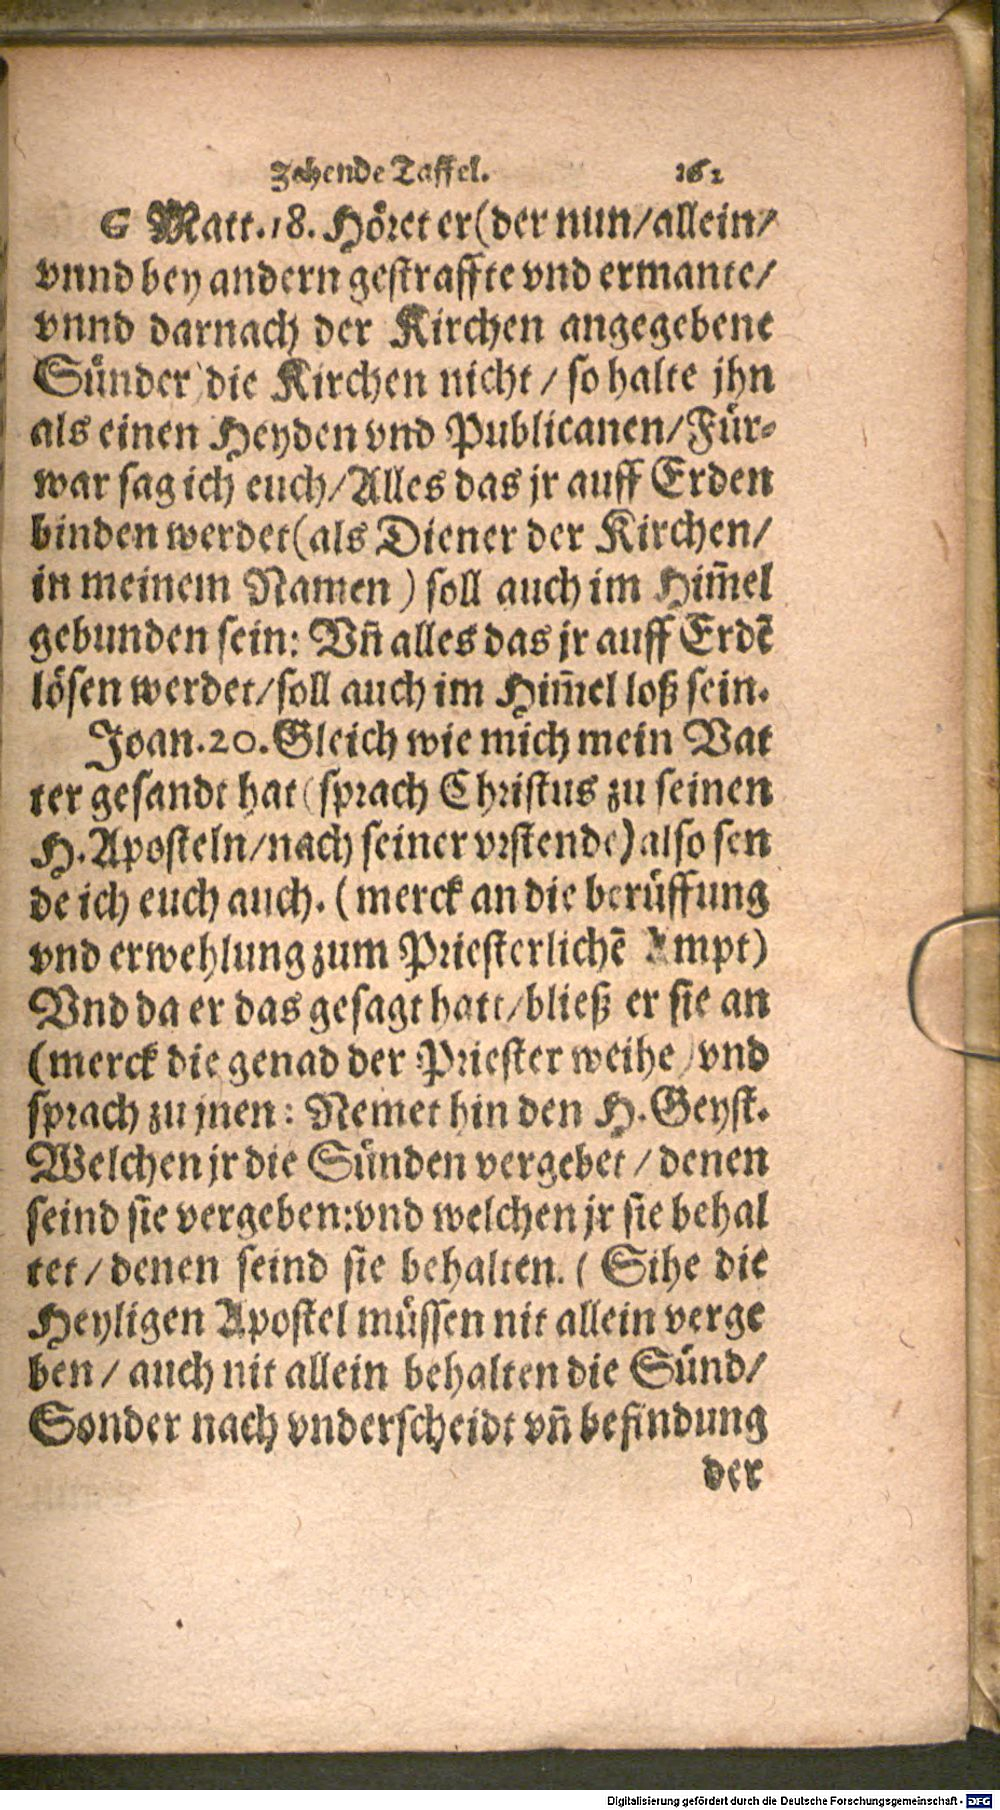 Zehende Taffel. 162
G Matt. 18. Höret er (der nun/allein/
vnnd bey andern gestraffte vnd ermante/
vnnd darnach der Kirchen angegebene
Sünder) die Kirchen nicht / so halte jhn
als einen Heyden vnd Publicanen/Für-
war sag ich euch/Alles das jr auff Erden
binden werdet (als Diener der Kirchen/
in meinem Namen) soll auch im Him̃el
gebunden sein: Vñ alles das jr auff Erdẽ
lösen werdet/soll auch im Him̃el loß sein.
Joan. 20. Gleich wie mich mein Vat
ter gesandt hat (sprach Christus zu seinen
H. Aposteln/nach seiner vrstende) also sen
de ich euch auch. (merck an die berüffung
vnd erwehlung zum Priesterlichẽ Ampt)
Vnd da er das gesagt hatt/bließ er sie an
(merck die genad der Priester weihe) vnd
sprach zu jnen: Nemet hin den H. Geyst.
Welchen jr die Sünden vergebet / denen
seind sie vergeben: vnd welchen jr sie behal
tet / denen seind sie behalten. (Sihe die
Heyligen Apostel müssen nit allein verge
ben / auch nit allein behalten die Sünd/
Sonder nach vnderscheidt vñ befindung
der
Digitalisierung gefördert durch die Deutsche Forschungsgemeinschaft - DFG